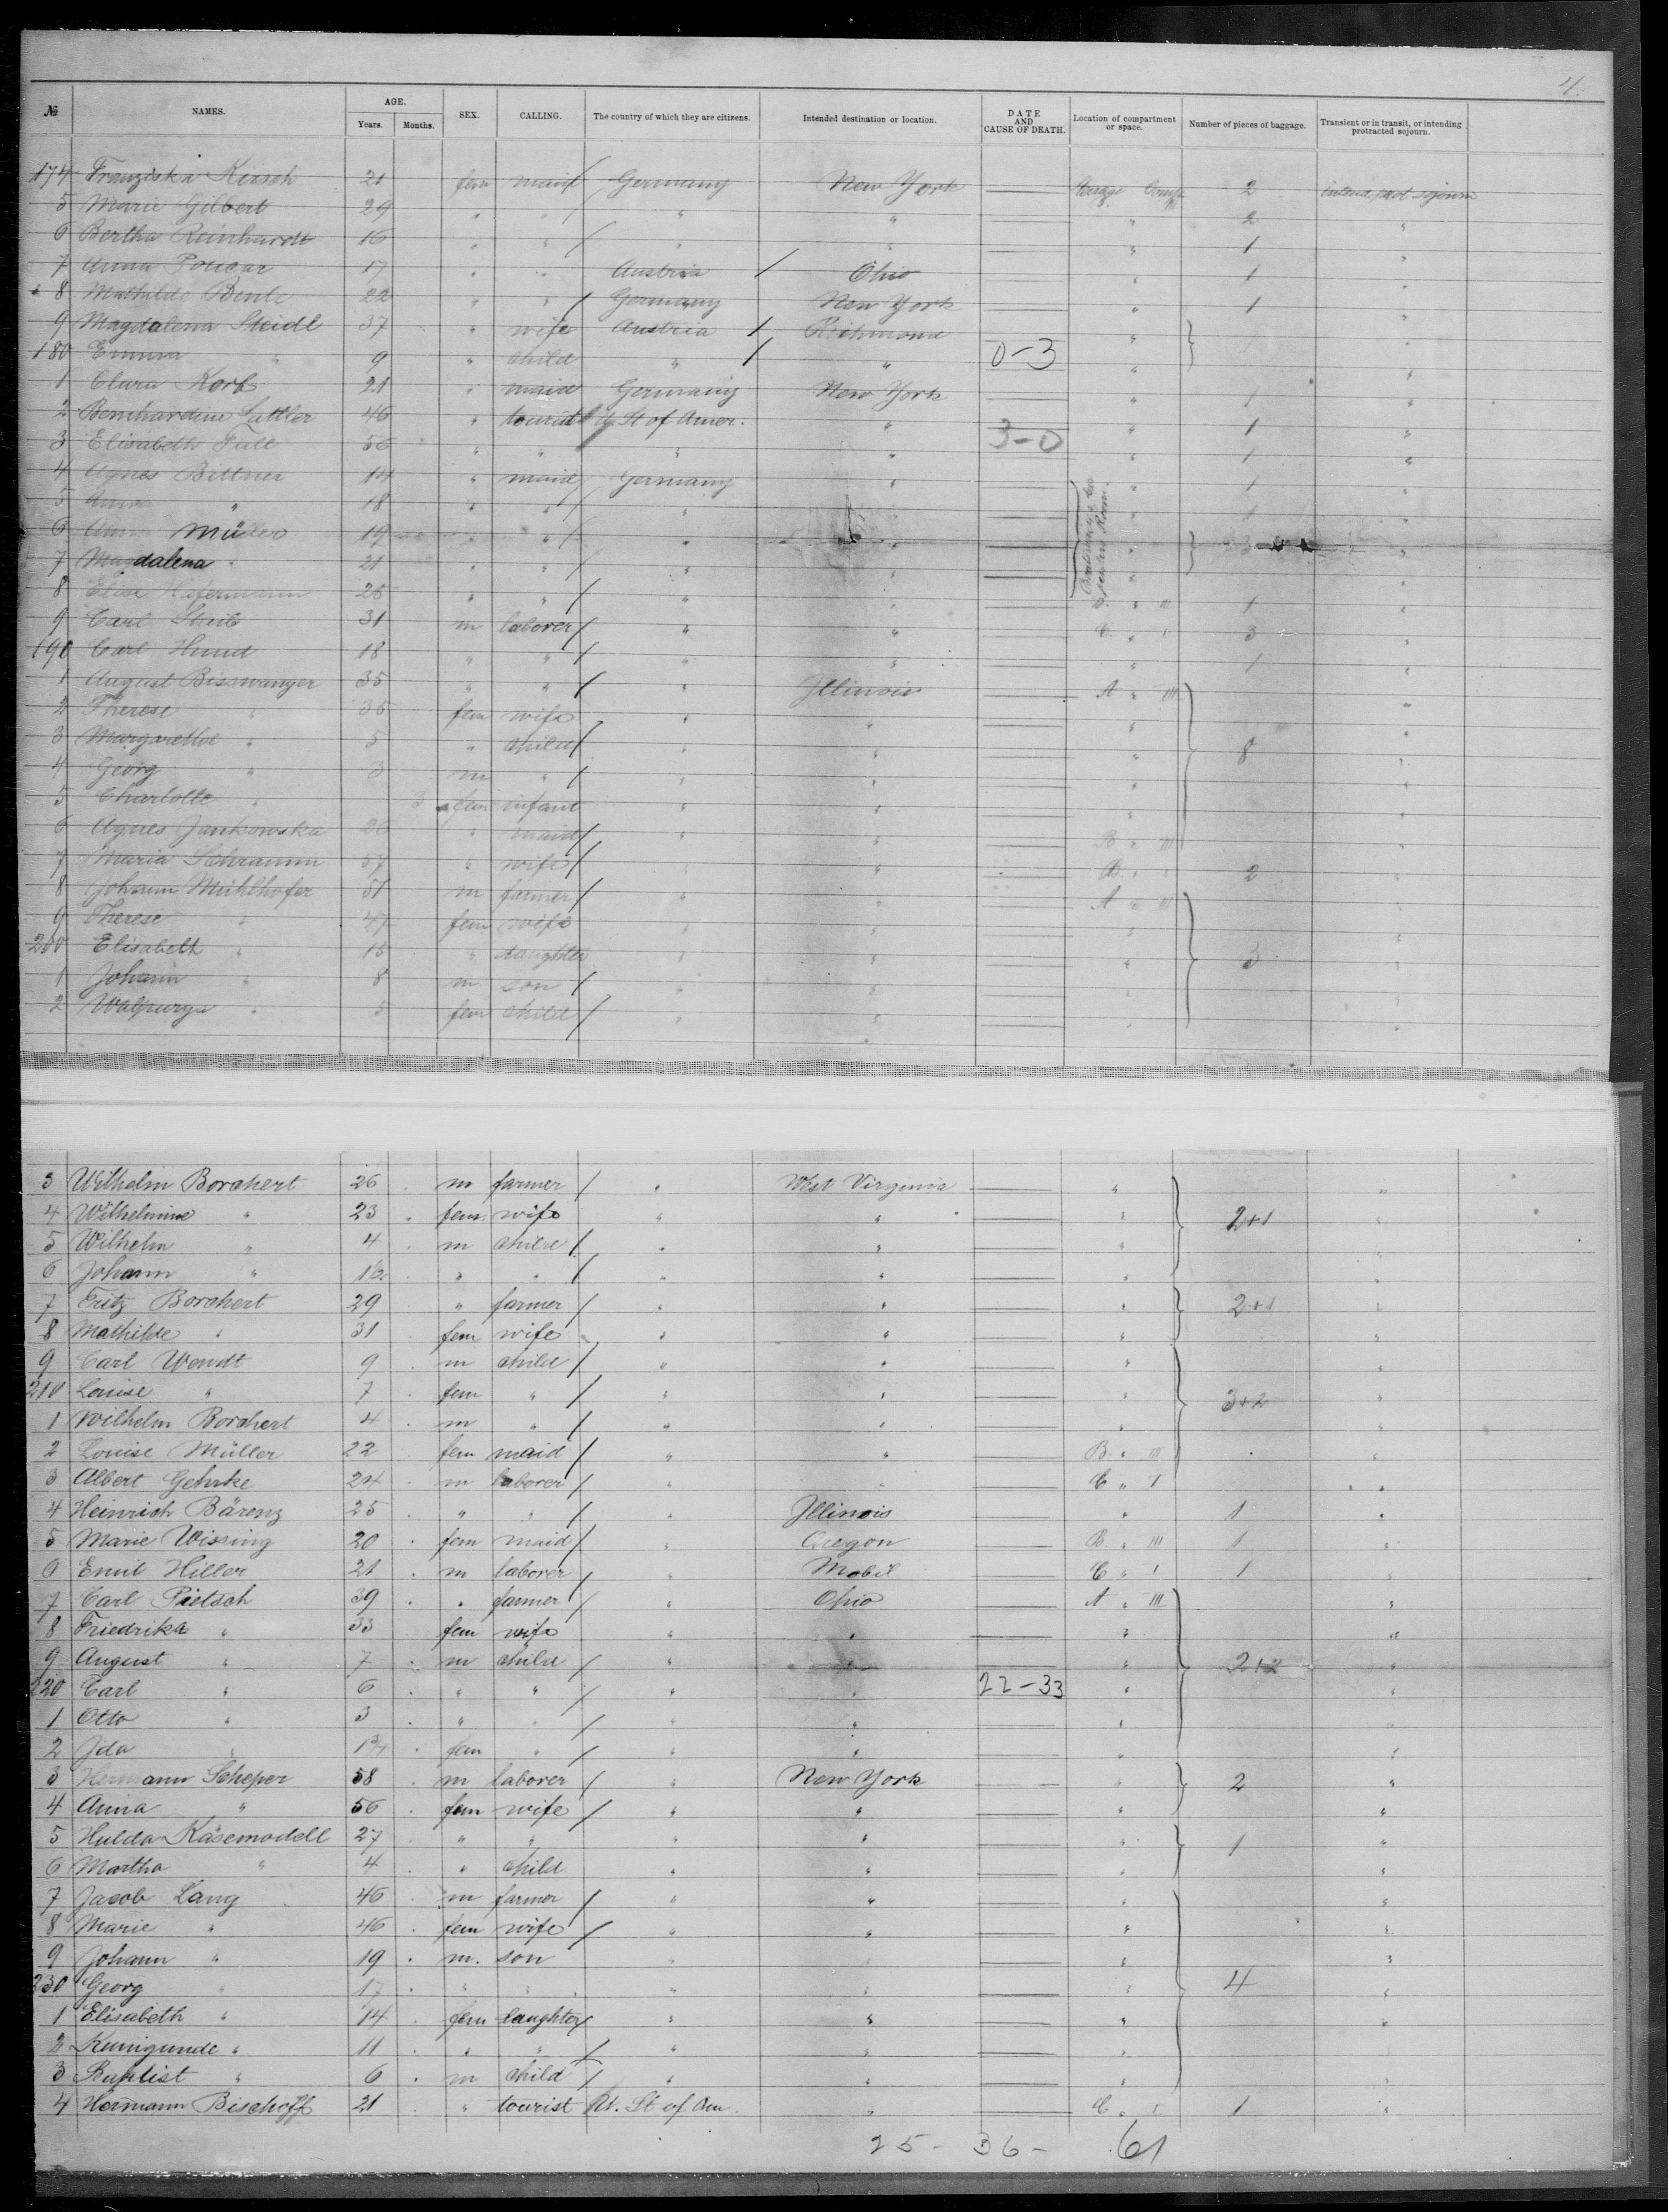 4.
№ NAMES. AGE. Years. Months. SEX. CALLING. The country of which they are citizens. Intended destination or location. DATE AND CAUSE OF DEATH. Location of compartment or space. Number of pieces of baggage. Transient or in transit, or intending protracted sojourn.
174 Franziska Kirsch 21 fem maid / Germany New York — 2
5 Marie Gilbert 29 " " / " " — " 2 "
6 Bertha Reinhardt 16 " " / " " — " 1 "
7 Anna Policar 17 " " Austria / Ohio — " 1 "
8 Mathilde 22 " " / Germany New York — " 1 "
9 Magdalena Steidl 37 " wife Austria / Richmond — " "
180 Emma " 9 " child " / " 0-3 " "
1 Clara Korf 21 " maid Germany New York — " 1 "
2 Bernhardine Sattler 46 " tourist U. St of Amer. " — " 1 "
3 Elisabeth 56 " " " " 3-0 " 1 "
4 Agnes Bittner 14 " maid Germany " — " 1 "
5 Anna " 18 " " / " " — " 1 "
6 Müller 19 " " / " " — " "
7 Magdalena " 21 " " / " " — " "
8 Elise 25 " " / " " — B. " III 1 "
9 Carl Steib 31 m laborer / " " — C. " I 3 "
190 Carl Hund 18 " " / " " — " 1 "
1 August Bisswanger 35 " " / " Illinois — A " III "
2 Therese " 35 fem wife " " — " "
3 Margarethe " 5 " child / " " — " 8 "
4 Georg " 3 m " / " " — " "
5 Charlotte " 3 fem infant " " — " "
6 Agnes Jankowska 26 " maid / " " — B " III "
7 Maria Schramm 57 " wife / " " — B. " " 2 "
8 Johann Mühlhofer 51 m farmer / " " — A " III "
9 Therese " 47 fem wife " " — " "
200 Elisabeth " 15 " daughter " " — " 3 "
1 Johann " 8 m son / " " — " "
2 Walpurga " 5 fem child / " " — " "
3 Wilhelm Borchert 26 m farmer / " West Virginia — " "
4 Wilhelmine " 23 fem. wife " " — " 2+1 "
5 Wilhelm " 4 m child / " " — " "
6 Johann " " " / " " — " "
7 Fritz Borchert 29 " farmer / " " — " 2+1 "
8 Mathilde " 31 fem wife " " — " "
9 Carl Wendt 9 m child / " " — " "
210 Louise " 7 fem " / " " — " 3+2 "
1 Wilhelm Borchert 4 m " / " " — " "
2 Louise Müller 22 fem maid / " " — B. " III "
3 Albert Gehrke 24 m laborer / " " — C " I "
4 Heinrich Bärenz 25 " " / " Illinois — " 1 "
5 Marie Wissing 20 fem maid / " Oregon — B. " III 1 "
6 Emil Hiller 21 m laborer / " Mobil — C " I 1 "
7 Carl Pietsch 39 " farmer / " Ohio — A " III "
8 Friedrika " 33 fem wife " " — " "
9 August " 7 m child / " " — " 2+2 "
220 Carl " 6 " " / " " 22-33 " "
1 Otto " 3 " " / " " — " "
2 Ida " fem " / " " — " "
3 Hermann Scheper 58 m laborer / " New York — " 2 "
4 Anna " 56 fem wife / " " — " "
5 Hulda Käsemodell 27 " " " " — " 1 "
6 Martha " 4 " child " " — " "
7 Jacob Lang 46 m farmer / " " — " "
8 Marie " 46 fem wife / " " — " "
9 Johann " 19 m. son " " — " "
230 Georg " 17 " " " " — " 4 "
1 Elisabeth " 14 fem daughter / " " — " "
2 Kunigunde " 11 " " / " " — " "
3 Baptist " 6 m child / " " — " "
4 Hermann Bischoff 21 " tourist U. St of Am. " — C. " I 1 "
25 - 36 - 61